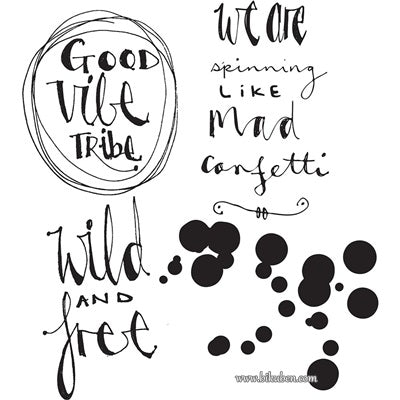 GOOD
Vibe
TRibe
we are
spinning
LiKE
mad
confetti
wild
AND
free
www.bikuben.com